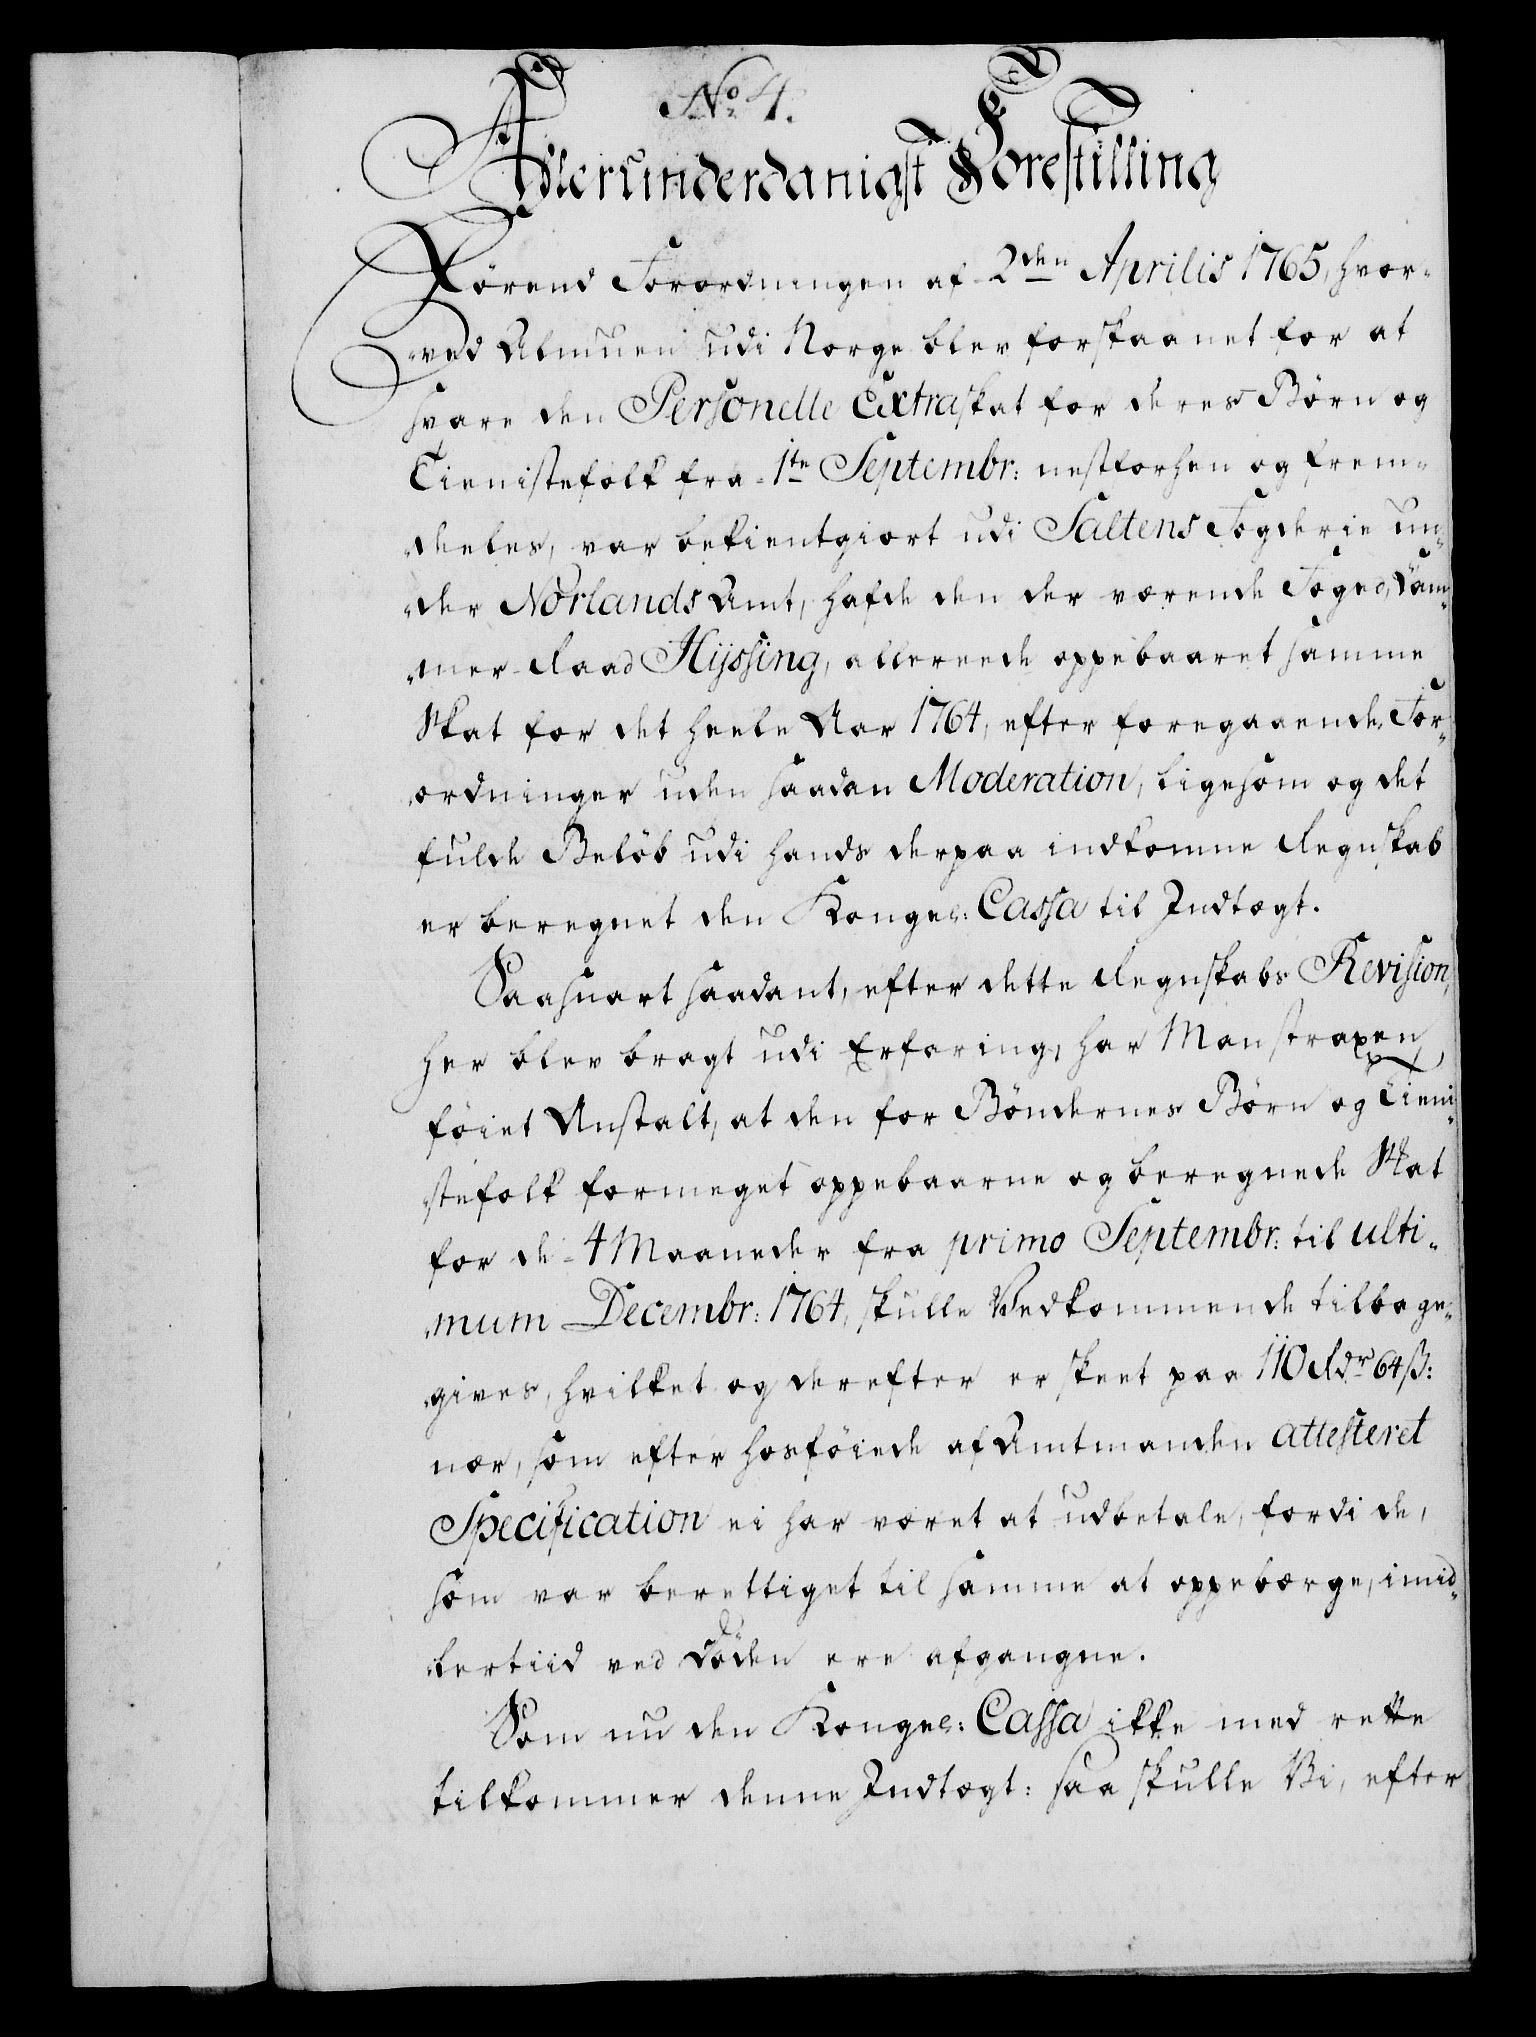 No 4.
Allerunderdanigst Forestilling
Førend Forordningen af 2den Aprilis 1765, hvor-
ved Almuen udi Norge blev forskaanet for at
svare den Personelle Extraskat for deres Børn og
Tienistefolk fra 1te Septembr: nestforhen og frem-
deeles, var bekientgiort udi Saltens Fogderie un-
der Norlands Amt, hafde den der værende Foged, Cam-
mer-Raad Hijssing, allereede oppebaaret samme
Skat for det heele Aar 1764, efter foregaaende For-
ordninger uden saadan Moderation, ligesom og det
fulde Beløb udi hands derpaa indkomne Regnskab
er beregnet den Kongel: Cassa til Indtægt.
Saasnart saadant, efter dette Regnskabs Revision,
her blev bragt udi Erfaring, har Man straxen
føiet Anstalt, at den for Bøndernes Børn og Tieni-
stefolk formeget oppebaarne og beregnede Skat
for de 4 Maaneder fra primo Septembr: til ulti-
mum Decembr: 1764, skulle Vedkommende tilbage-
gives, hvilket og derefter er skeet paa 110 Rdr 64 ß:
nær, som efter hosføiede af Amtmanden attesteret
Specification ei har været at udbetale, fordi de,
som var berettiget til samme at oppebærge, imid-
lertiid ved Døden ere afgangne.
Som nu den Kongel: Cassa ikke med rette
tilkommer denne Indtægt: saa skulle Vi, efter